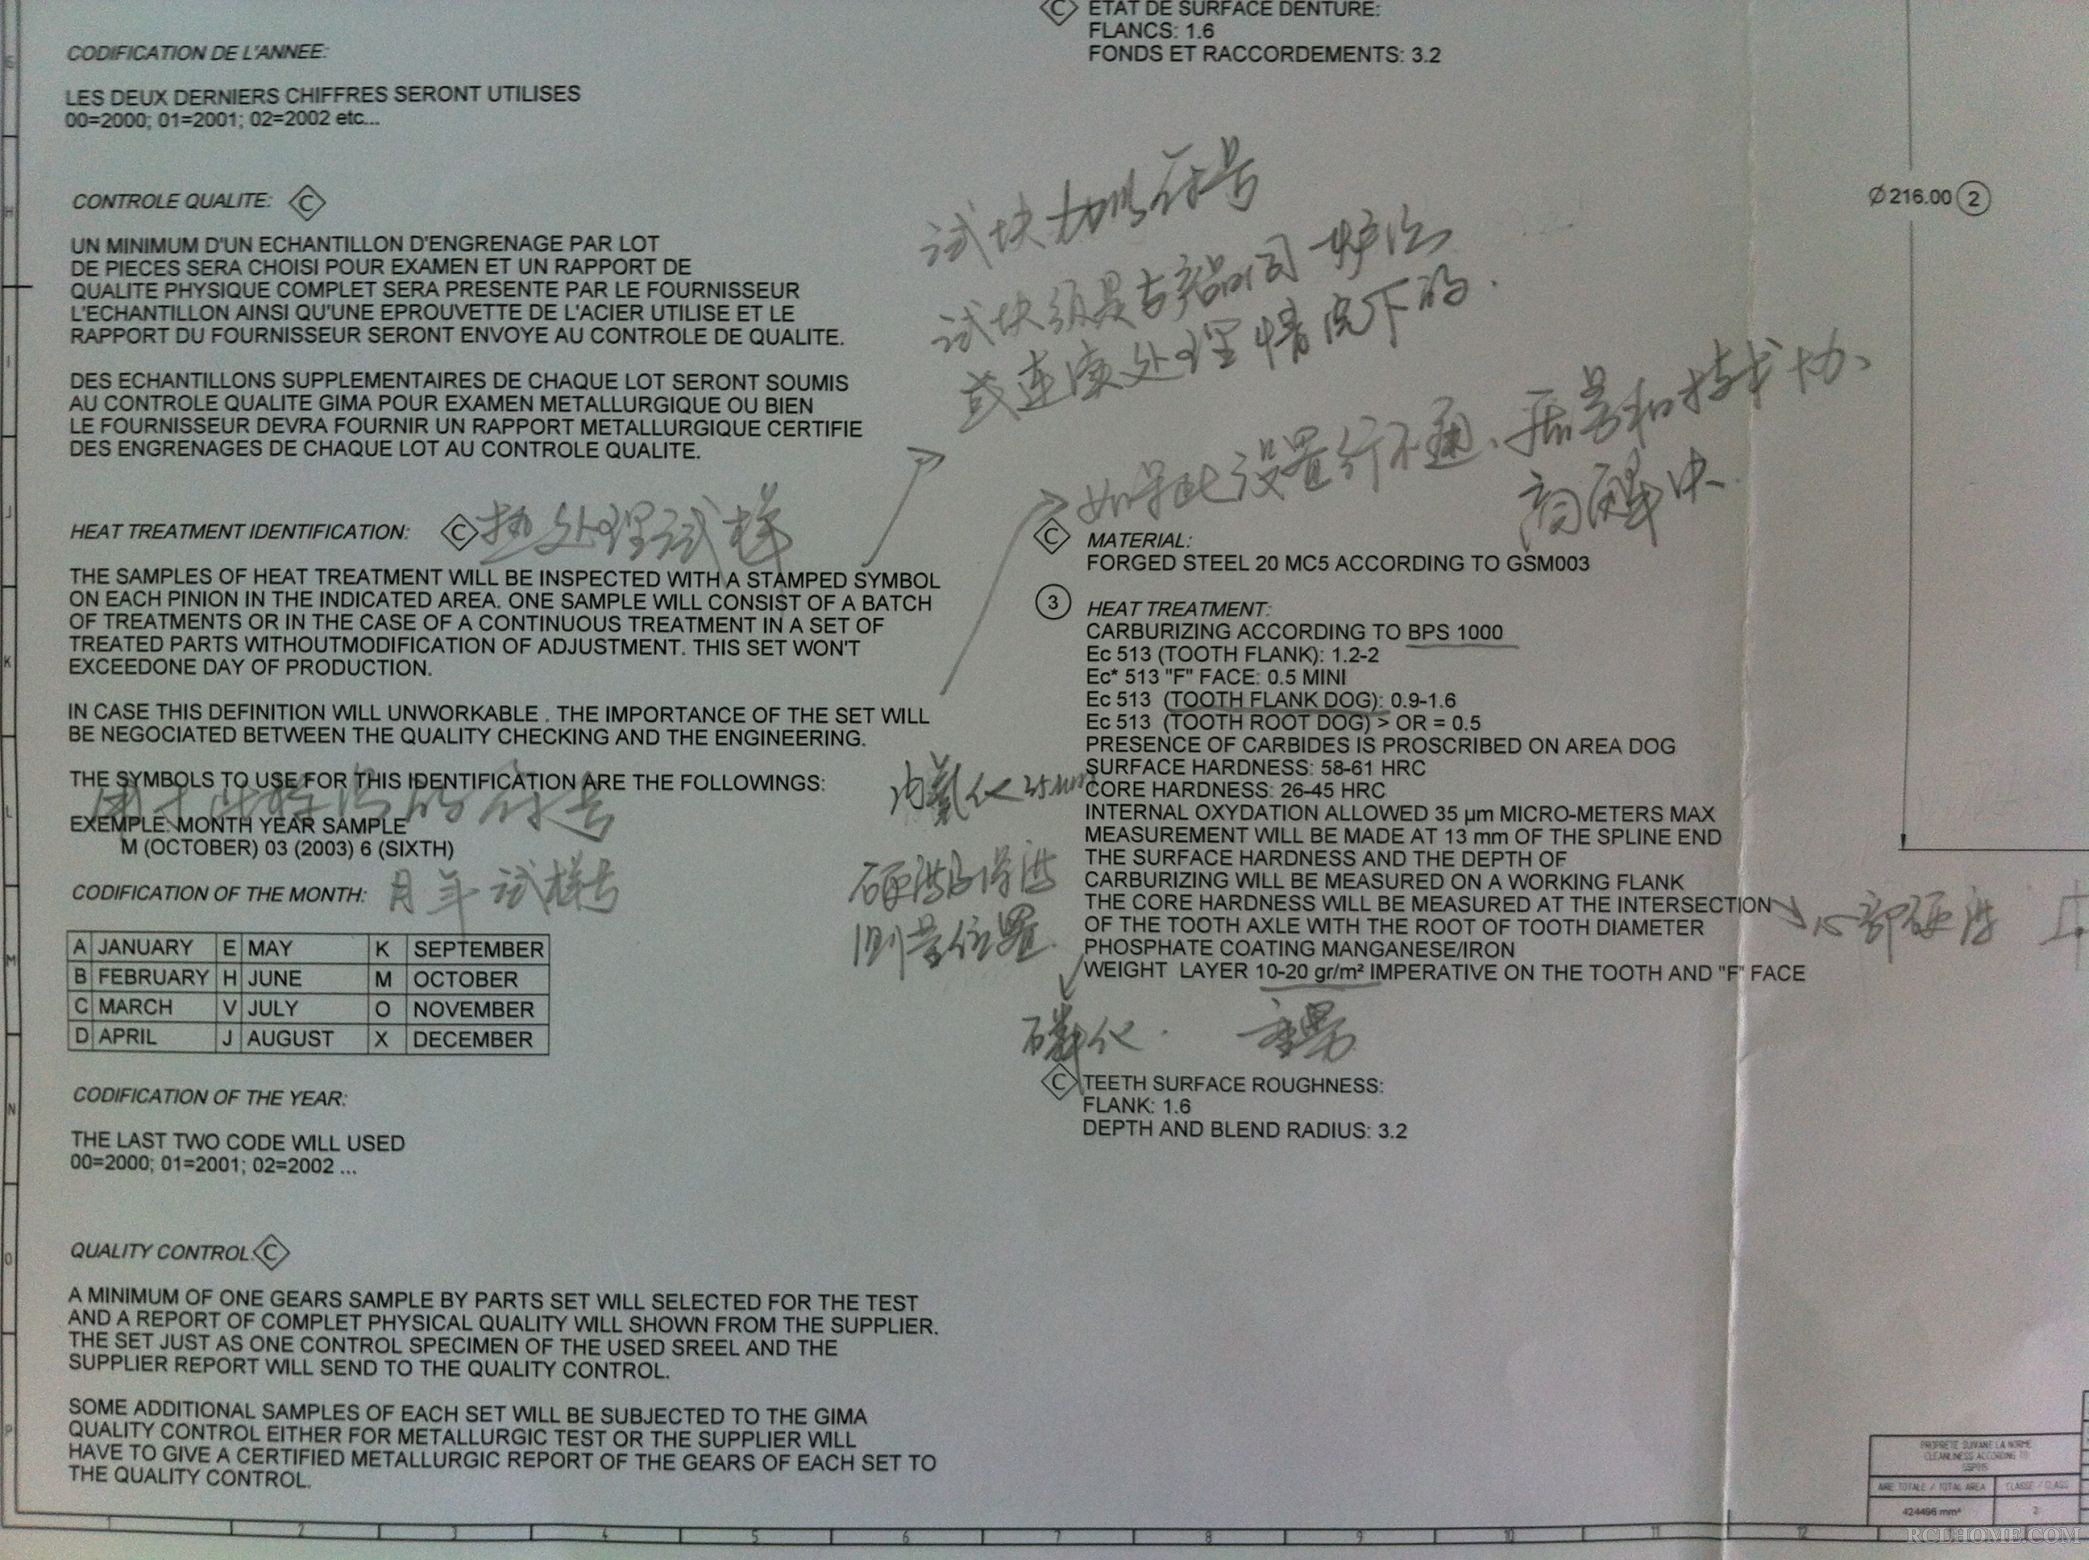 CODIFICATION DE L'ANNEE:
LES DEUX DERNIERS CHIFFRES SERONT UTILISES
00=2000; 01=2001; 02=2002 etc...
CONTROLE QUALITE: C
UN MINIMUM D'UN ECHANTILLON D'ENGRENAGE PAR LOT
DE PIECES SERA CHOISI POUR EXAMEN ET UN RAPPORT DE
QUALITE PHYSIQUE COMPLET SERA PRESENTE PAR LE FOURNISSEUR
L'ECHANTILLON AINSI QU'UNE EPROUVETTE DE L'ACIER UTILISE ET LE
RAPPORT DU FOURNISSEUR SERONT ENVOYE AU CONTROLE DE QUALITE.
DES ECHANTILLONS SUPPLEMENTAIRES DE CHAQUE LOT SERONT SOUMIS
AU CONTROLE QUALITE GIMA POUR EXAMEN METALLURGIQUE OU BIEN
LE FOURNISSEUR DEVRA FOURNIR UN RAPPORT METALLURGIQUE CERTIFIE
DES ENGRENAGES DE CHAQUE LOT AU CONTROLE QUALITE.
HEAT TREATMENT IDENTIFICATION: C 热处理试样
THE SAMPLES OF HEAT TREATMENT WILL BE INSPECTED WITH A STAMPED SYMBOL
ON EACH PINION IN THE INDICATED AREA. ONE SAMPLE WILL CONSIST OF A BATCH
OF TREATMENTS OR IN THE CASE OF A CONTINUOUS TREATMENT IN A SET OF
TREATED PARTS WITHOUTMODIFICATION OF ADJUSTMENT. THIS SET WON'T
EXCEEDONE DAY OF PRODUCTION.
IN CASE THIS DEFINITION WILL UNWORKABLE . THE IMPORTANCE OF THE SET WILL
BE NEGOCIATED BETWEEN THE QUALITY CHECKING AND THE ENGINEERING.
THE SYMBOLS TO USE FOR THIS IDENTIFICATION ARE THE FOLLOWINGS:
的符号
EXEMPLE: MONTH YEAR SAMPLE
M (OCTOBER) 03 (2003) 6 (SIXTH)
CODIFICATION OF THE MONTH: 月年试样号
A JANUARY E MAY K SEPTEMBER
B FEBRUARY H JUNE M OCTOBER
C MARCH V JULY O NOVEMBER
D APRIL J AUGUST X DECEMBER
CODIFICATION OF THE YEAR:
THE LAST TWO CODE WILL USED
00=2000; 01=2001; 02=2002 ...
QUALITY CONTROL: C
A MINIMUM OF ONE GEARS SAMPLE BY PARTS SET WILL SELECTED FOR THE TEST
AND A REPORT OF COMPLET PHYSICAL QUALITY WILL SHOWN FROM THE SUPPLIER.
THE SET JUST AS ONE CONTROL SPECIMEN OF THE USED SREEL AND THE
SUPPLIER REPORT WILL SEND TO THE QUALITY CONTROL.
SOME ADDITIONAL SAMPLES OF EACH SET WILL BE SUBJECTED TO THE GIMA
QUALITY CONTROL EITHER FOR METALLURGIC TEST OR THE SUPPLIER WILL
HAVE TO GIVE A CERTIFIED METALLURGIC REPORT OF THE GEARS OF EACH SET TO
THE QUALITY CONTROL.
C ETAT DE SURFACE DENTURE:
FLANCS: 1.6
FONDS ET RACCORDEMENTS: 3.2
试块加明符号
试块须是与产品同一炉次
或连续处理情况下的.
如果此设置行不通、质量和技术协、
商解决.
C MATERIAL:
FORGED STEEL 20 MC5 ACCORDING TO GSM003
3 HEAT TREATMENT:
CARBURIZING ACCORDING TO BPS 1000
Ec 513 (TOOTH FLANK): 1.2-2
Ec* 513 "F" FACE: 0.5 MINI
Ec 513 (TOOTH FLANK DOG): 0.9-1.6
Ec 513 (TOOTH ROOT DOG) > OR = 0.5
PRESENCE OF CARBIDES IS PROSCRIBED ON AREA DOG
SURFACE HARDNESS: 58-61 HRC
CORE HARDNESS: 26-45 HRC
内氧化
INTERNAL OXYDATION ALLOWED 35 µm MICRO-METERS MAX
MEASUREMENT WILL BE MADE AT 13 mm OF THE SPLINE END
THE SURFACE HARDNESS AND THE DEPTH OF
CARBURIZING WILL BE MEASURED ON A WORKING FLANK
硬度及深度
测量位置
THE CORE HARDNESS WILL BE MEASURED AT THE INTERSECTION
心部硬度
OF THE TOOTH AXLE WITH THE ROOT OF TOOTH DIAMETER
PHOSPHATE COATING MANGANESE/IRON
WEIGHT LAYER 10-20 gr/m² IMPERATIVE ON THE TOOTH AND "F" FACE
磷化. 重量
C TEETH SURFACE ROUGHNESS:
FLANK: 1.6
DEPTH AND BLEND RADIUS: 3.2
Ø216.00 2
PROPRETE SUIVANT LA NORME
CLEANLINESS ACCORDING TO
AIRE TOTALE / TOTAL AREA CLASSE / CLASS
424496 mm² 2
E
H
I
J
K
L
M
N
O
P
1 2 3 4 5 6 7 8 9 10 11 12
RCLHOME.COM